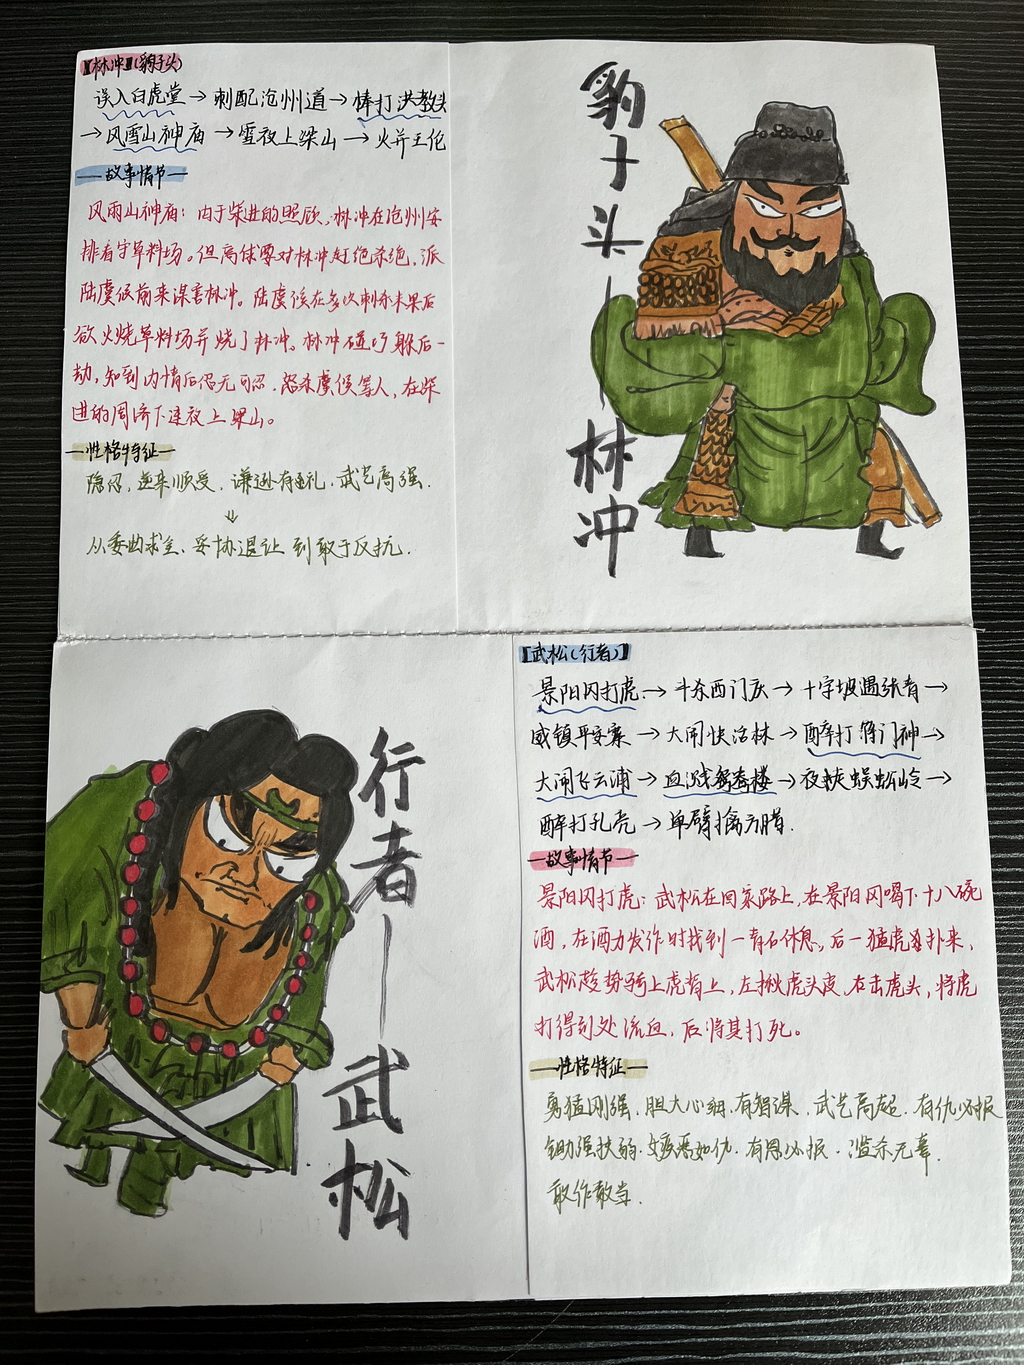 【林冲】(豹子头)
误入白虎堂→刺配沧州道→棒打洪教头
→风雪山神庙→雪夜上梁山→火并王伦
—故事情节—
风雨山神庙：由于柴进的照顾，林冲在沧州安
排看守草料场。但高俅要对林冲赶绝杀绝，派
陆虞候前来谋害林冲。陆虞候在多次刺杀未果后
欲火烧草料场并烧了林冲。林冲碰巧躲后一
劫，知到内情后忍无可忍，怒杀虞候等人，在柴
进的周济下连夜上梁山。
—性格特征—
隐忍，逆来顺受，谦逊有礼，武艺高强.
↓
从委曲求全、妥协退让 到敢于反抗.
豹子头—林冲
行者—武松
【武松(行者)】
景阳冈打虎→斗杀西门庆→十字坡遇张青→
威镇平安寨→大闹快活林→醉打蒋门神→
大闹飞云浦→血溅鸳鸯楼→夜走蜈蚣岭→
醉打孔亮→单臂擒方腊.
—故事情节—
景阳冈打虎：武松在回家路上，在景阳冈喝下十八碗
酒，在酒力发作时找到一青石休息，后一猛虎扑来，
武松趁势骑上虎背上，左揪虎头皮，右击虎头，将虎
打得到处流血，后将其打死。
—性格特征—
勇猛刚强，胆大心细，有智谋，武艺高超，有仇必报
锄强扶弱，嫉恶如仇，有恩必报，滥杀无辜，
敢作敢当.